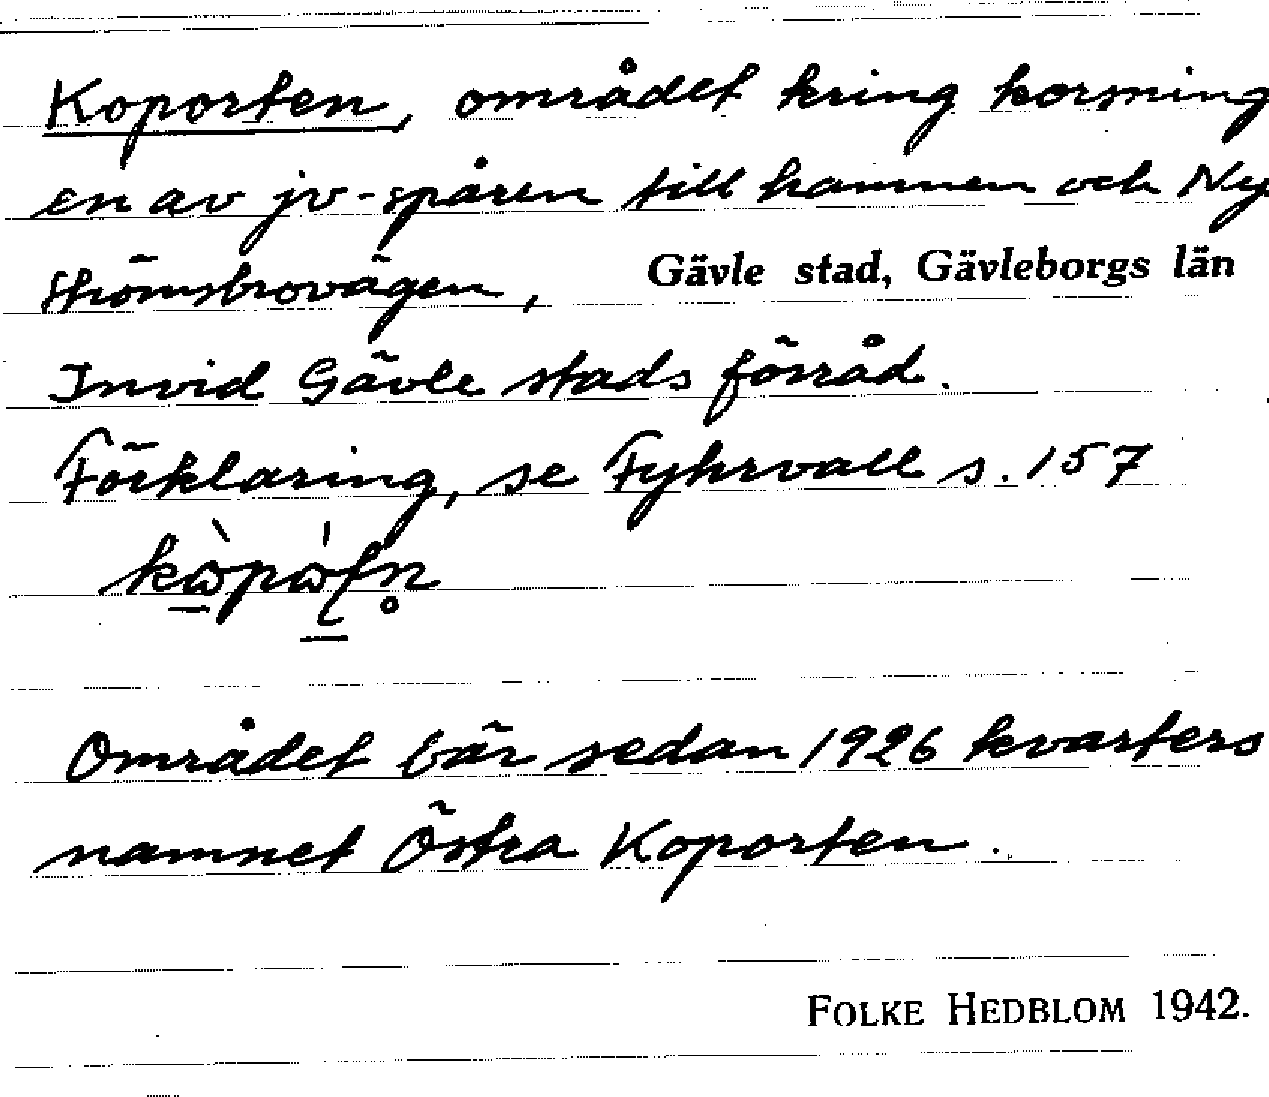 Koporten, området kring korsning
en av jv-spåren till hamnen och Ny
strömsbrovägen, Gävle stad, Gävleborgs län
Invid Gävle stads förråd.
Förklaring, se Fyhrvall s. 157
Området bär sedan 1926 kvarters
namnet Östra Koporten.
FOLKE HEDBLOM 1942.